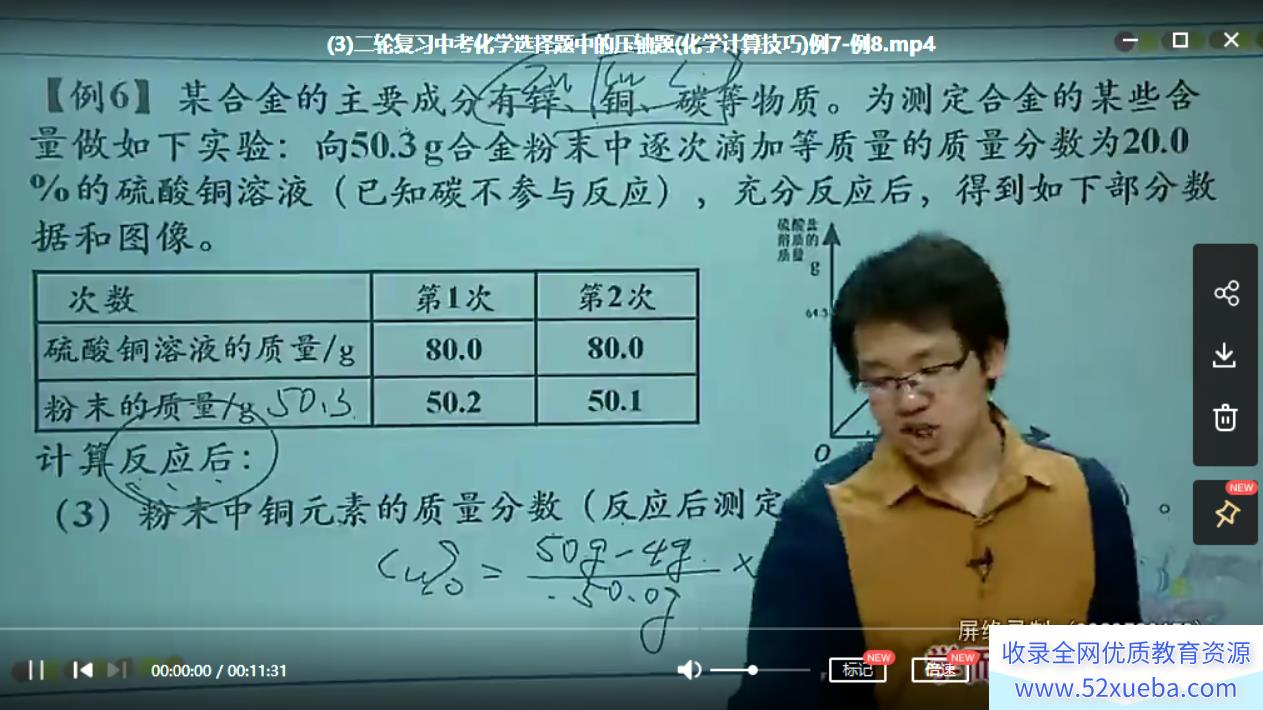 (3)二轮复习中考化学选择题中的压轴题(化学计算技巧)例7-例8.mp4
【例6】某合金的主要成分有锌、铜、碳等物质。为测定合金的某些含
量做如下实验：向50.3g合金粉末中逐次滴加等质量的质量分数为20.0
%的硫酸铜溶液（已知碳不参与反应），充分反应后，得到如下部分数
据和图像。
硫酸盐
溶质的
质量
g
64.3
O
次数 第1次 第2次
硫酸铜溶液的质量/g 80.0 80.0
粉末的质量/g 50.3 50.2 50.1
计算反应后：
（3）粉末中铜元素的质量分数（反应后测定
）。
Cu% = 50g-4g ×
50.0g
NEW
00:00:00 / 00:11:31
标记 NEW
倍速 NEW
收录全网优质教育资源
www.52xueba.com